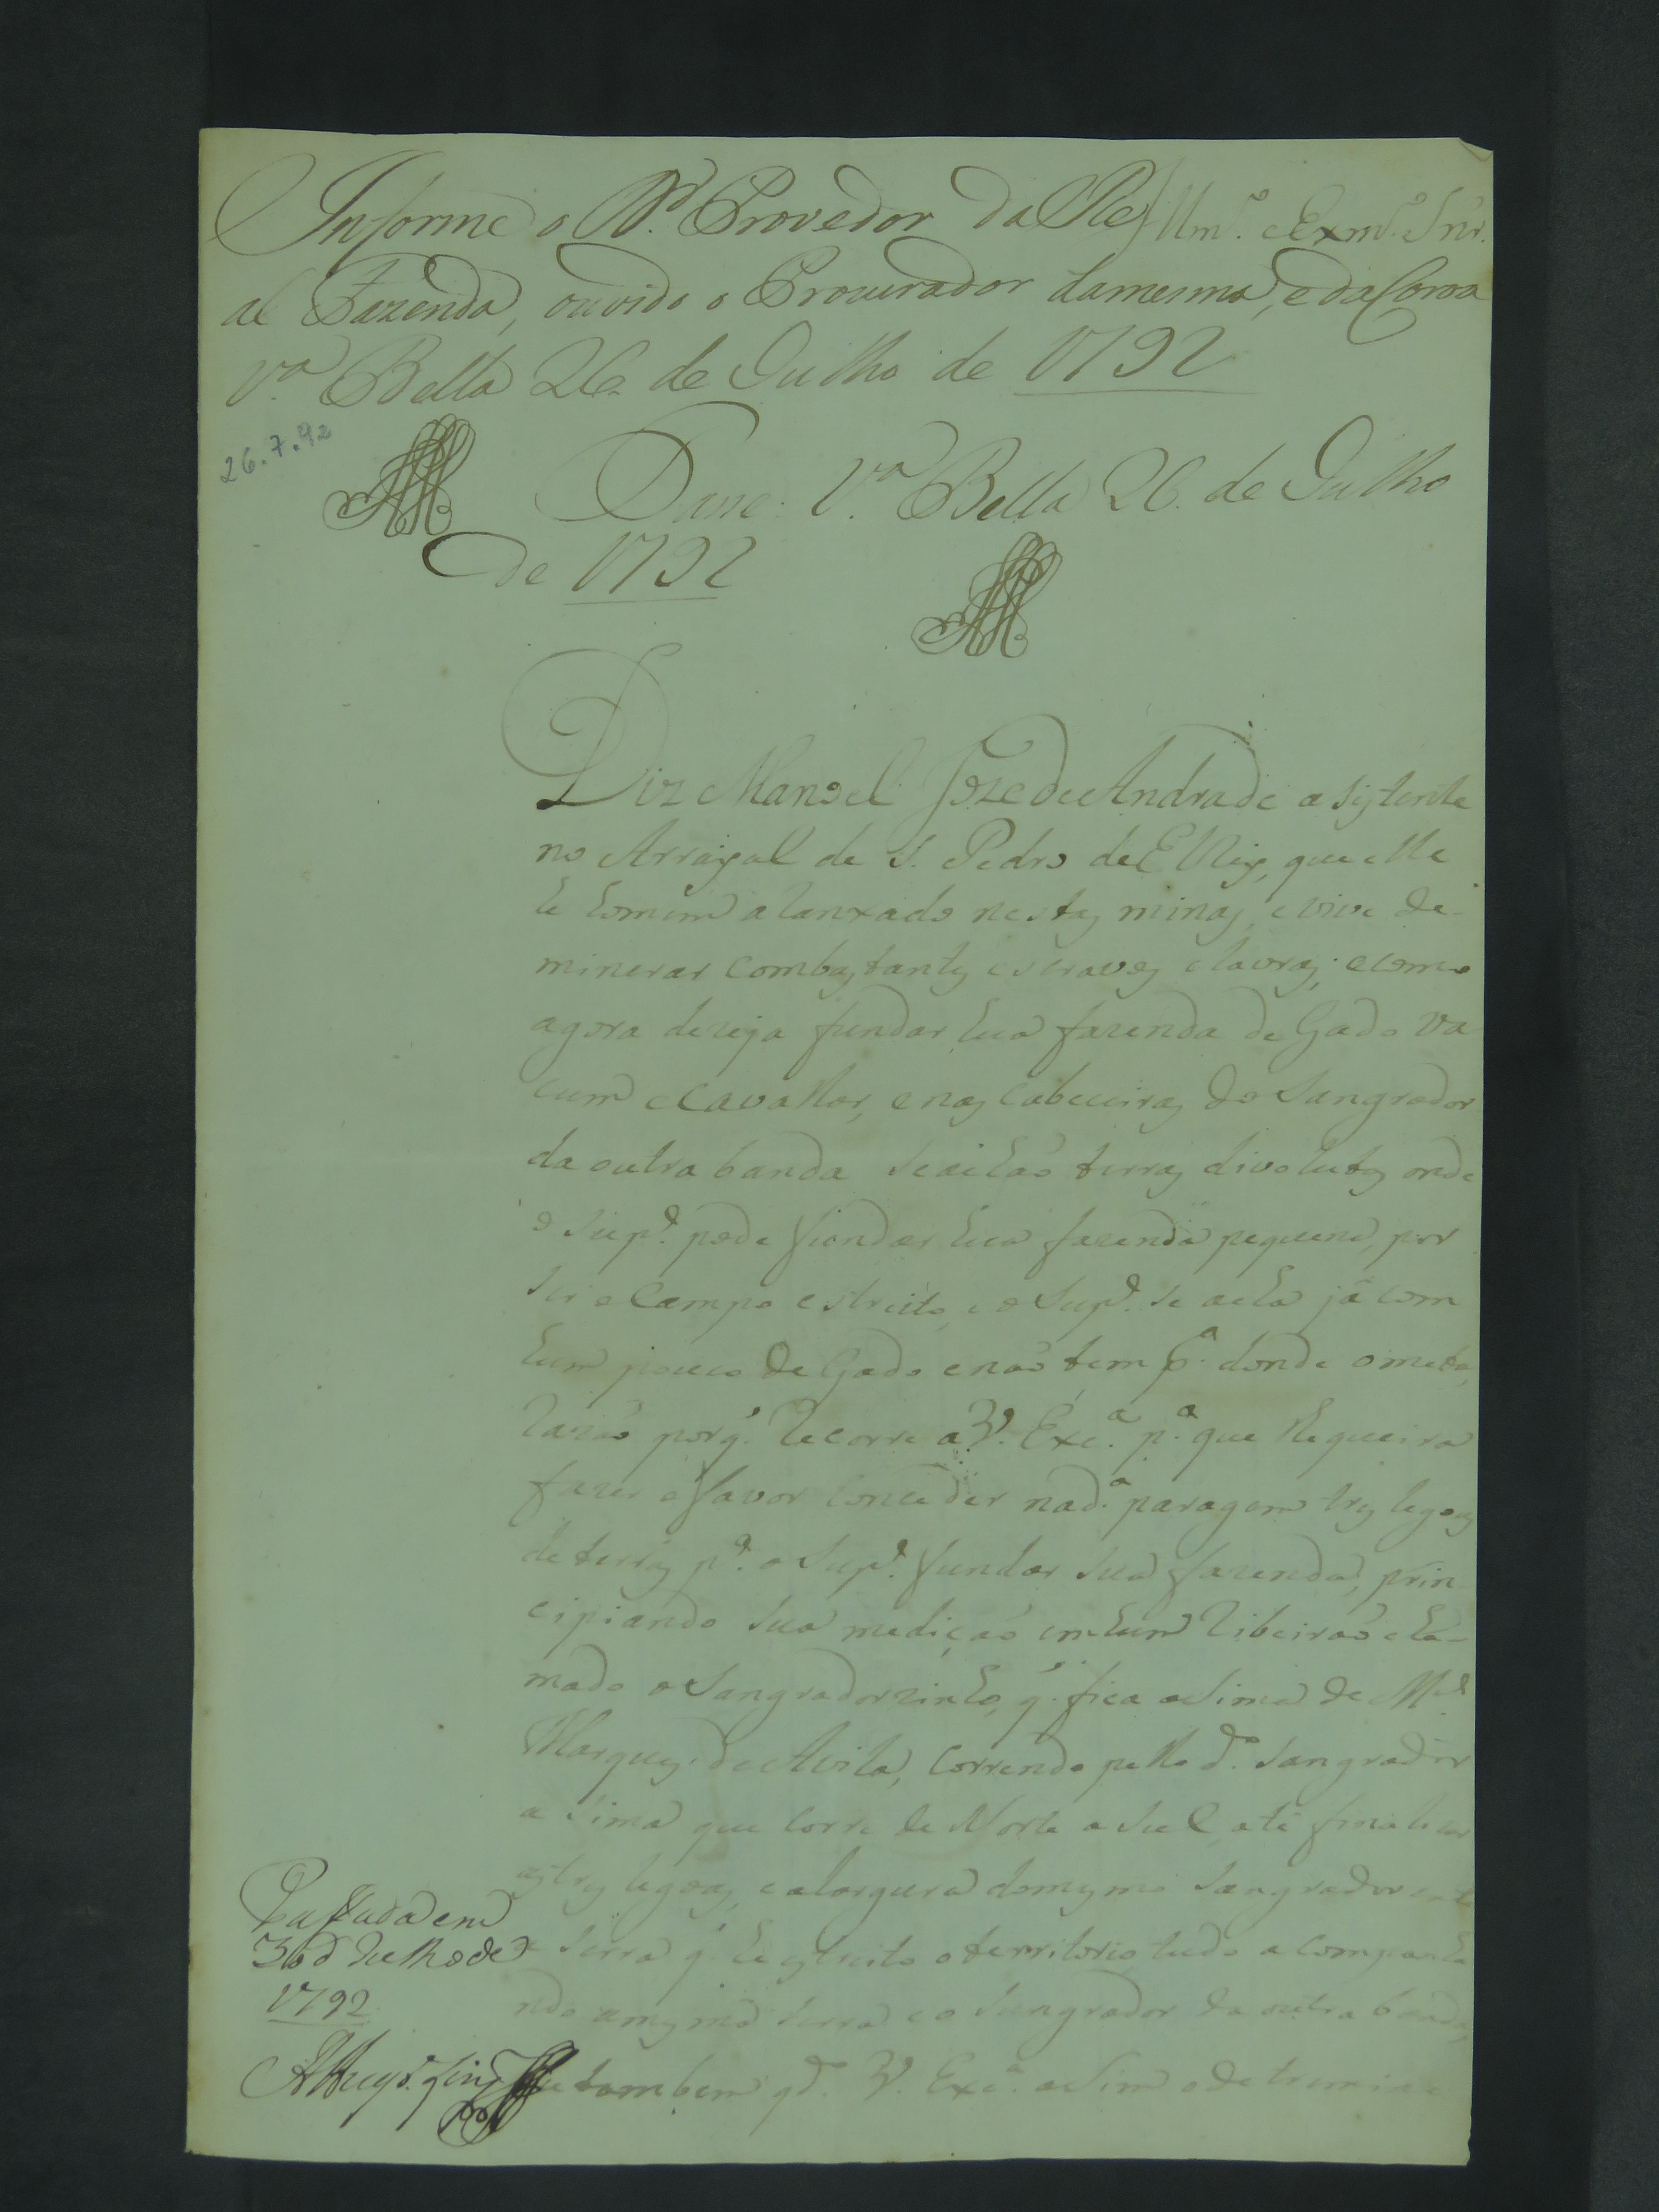 Informe o D.r Provedor da Re
Illm.º e Exm.º Snr.
al Fazenda, ouvido o Procurador da mesma, e da Coroa
V.ª Bella 26 de Julho de 1792
26.7.92
Dase. V.ª Bella 26 de Julho
de 1792
Diz Manoel Joze de Andrade asistente
no Arrayal de S. Pedro de ElRey, que elle
he homem alanxado nestas minas, e vive de
minerar com bastantes escravos e lavras; e como
agora dezeja fundar hua fazenda de Gado va
cum e Cavallar, e nas Cabeceiras do Sangrador
da outra banda se achaõ terras divolutas onde
o Sup.e pode fundar hua fazenda pequena, por
ser o Campo estreito, e o Sup.e se acha já com
hum pouco de Gado e naõ tem p.ª donde o meta,
razaõ porq. recorre a V. Exc.ª p.ª que lhe queira
fazer o favor conceder na d.ª paragem tres legoas
de terras p.ª o Sup.e fundar sua fazenda, prin
cipiando sua mediçaõ em hum ribeiraõ cha-
mado o Sangradorzinho, q. fica asima de M.el
Marques de Avila, correndo pello d.º Sangrador
asima que corre de Norte a Sul, athe finalizar
as tres legoas, e a largura do mesmo Sangrador
a Serra q. he estreito o territorio, tudo acompanha
ndo a mesma Serra e o Sangrador da outra banda,
Passada em
30 d Julho de
1792
tambem q.do V. Exc.ª asim o determine